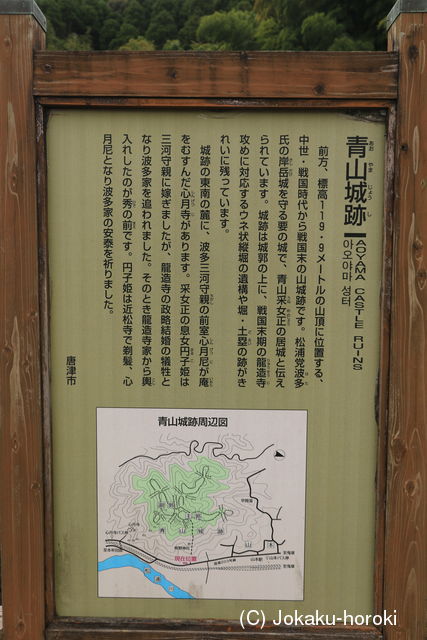 青山城跡
あお やま じょう し
AOYAMA CASTLE RUINS
아오야마 성터
前方、標高119・9メートルの山頂に位置する、
中世・戦国時代から戦国末の山城跡です。松浦党波多
氏の岸岳城を守る要の城で、青山采女正の居城と伝え
られています。城跡は城郭の上に、戦国末期の龍造寺
攻めに対応するウネ状縦堀の遺構や堀・土塁の跡がき
れいに残っています。
城跡の東南の麓に、波多三河守親の前室心月尼が庵
をむすんだ心月寺があります。采女正の息女円子姫は
三河守親に嫁ぎましたが、龍造寺の政略結婚の犠牲と
なり波多家を追われました。そのとき龍造寺家から輿
入れしたのが秀の前です。円子姫は近松寺で剃髪、心
月尼となり波多家の安泰を祈りました。
唐津市
青山城跡周辺図
青山城跡
現在位置
山本
(C) Jokaku-horoki